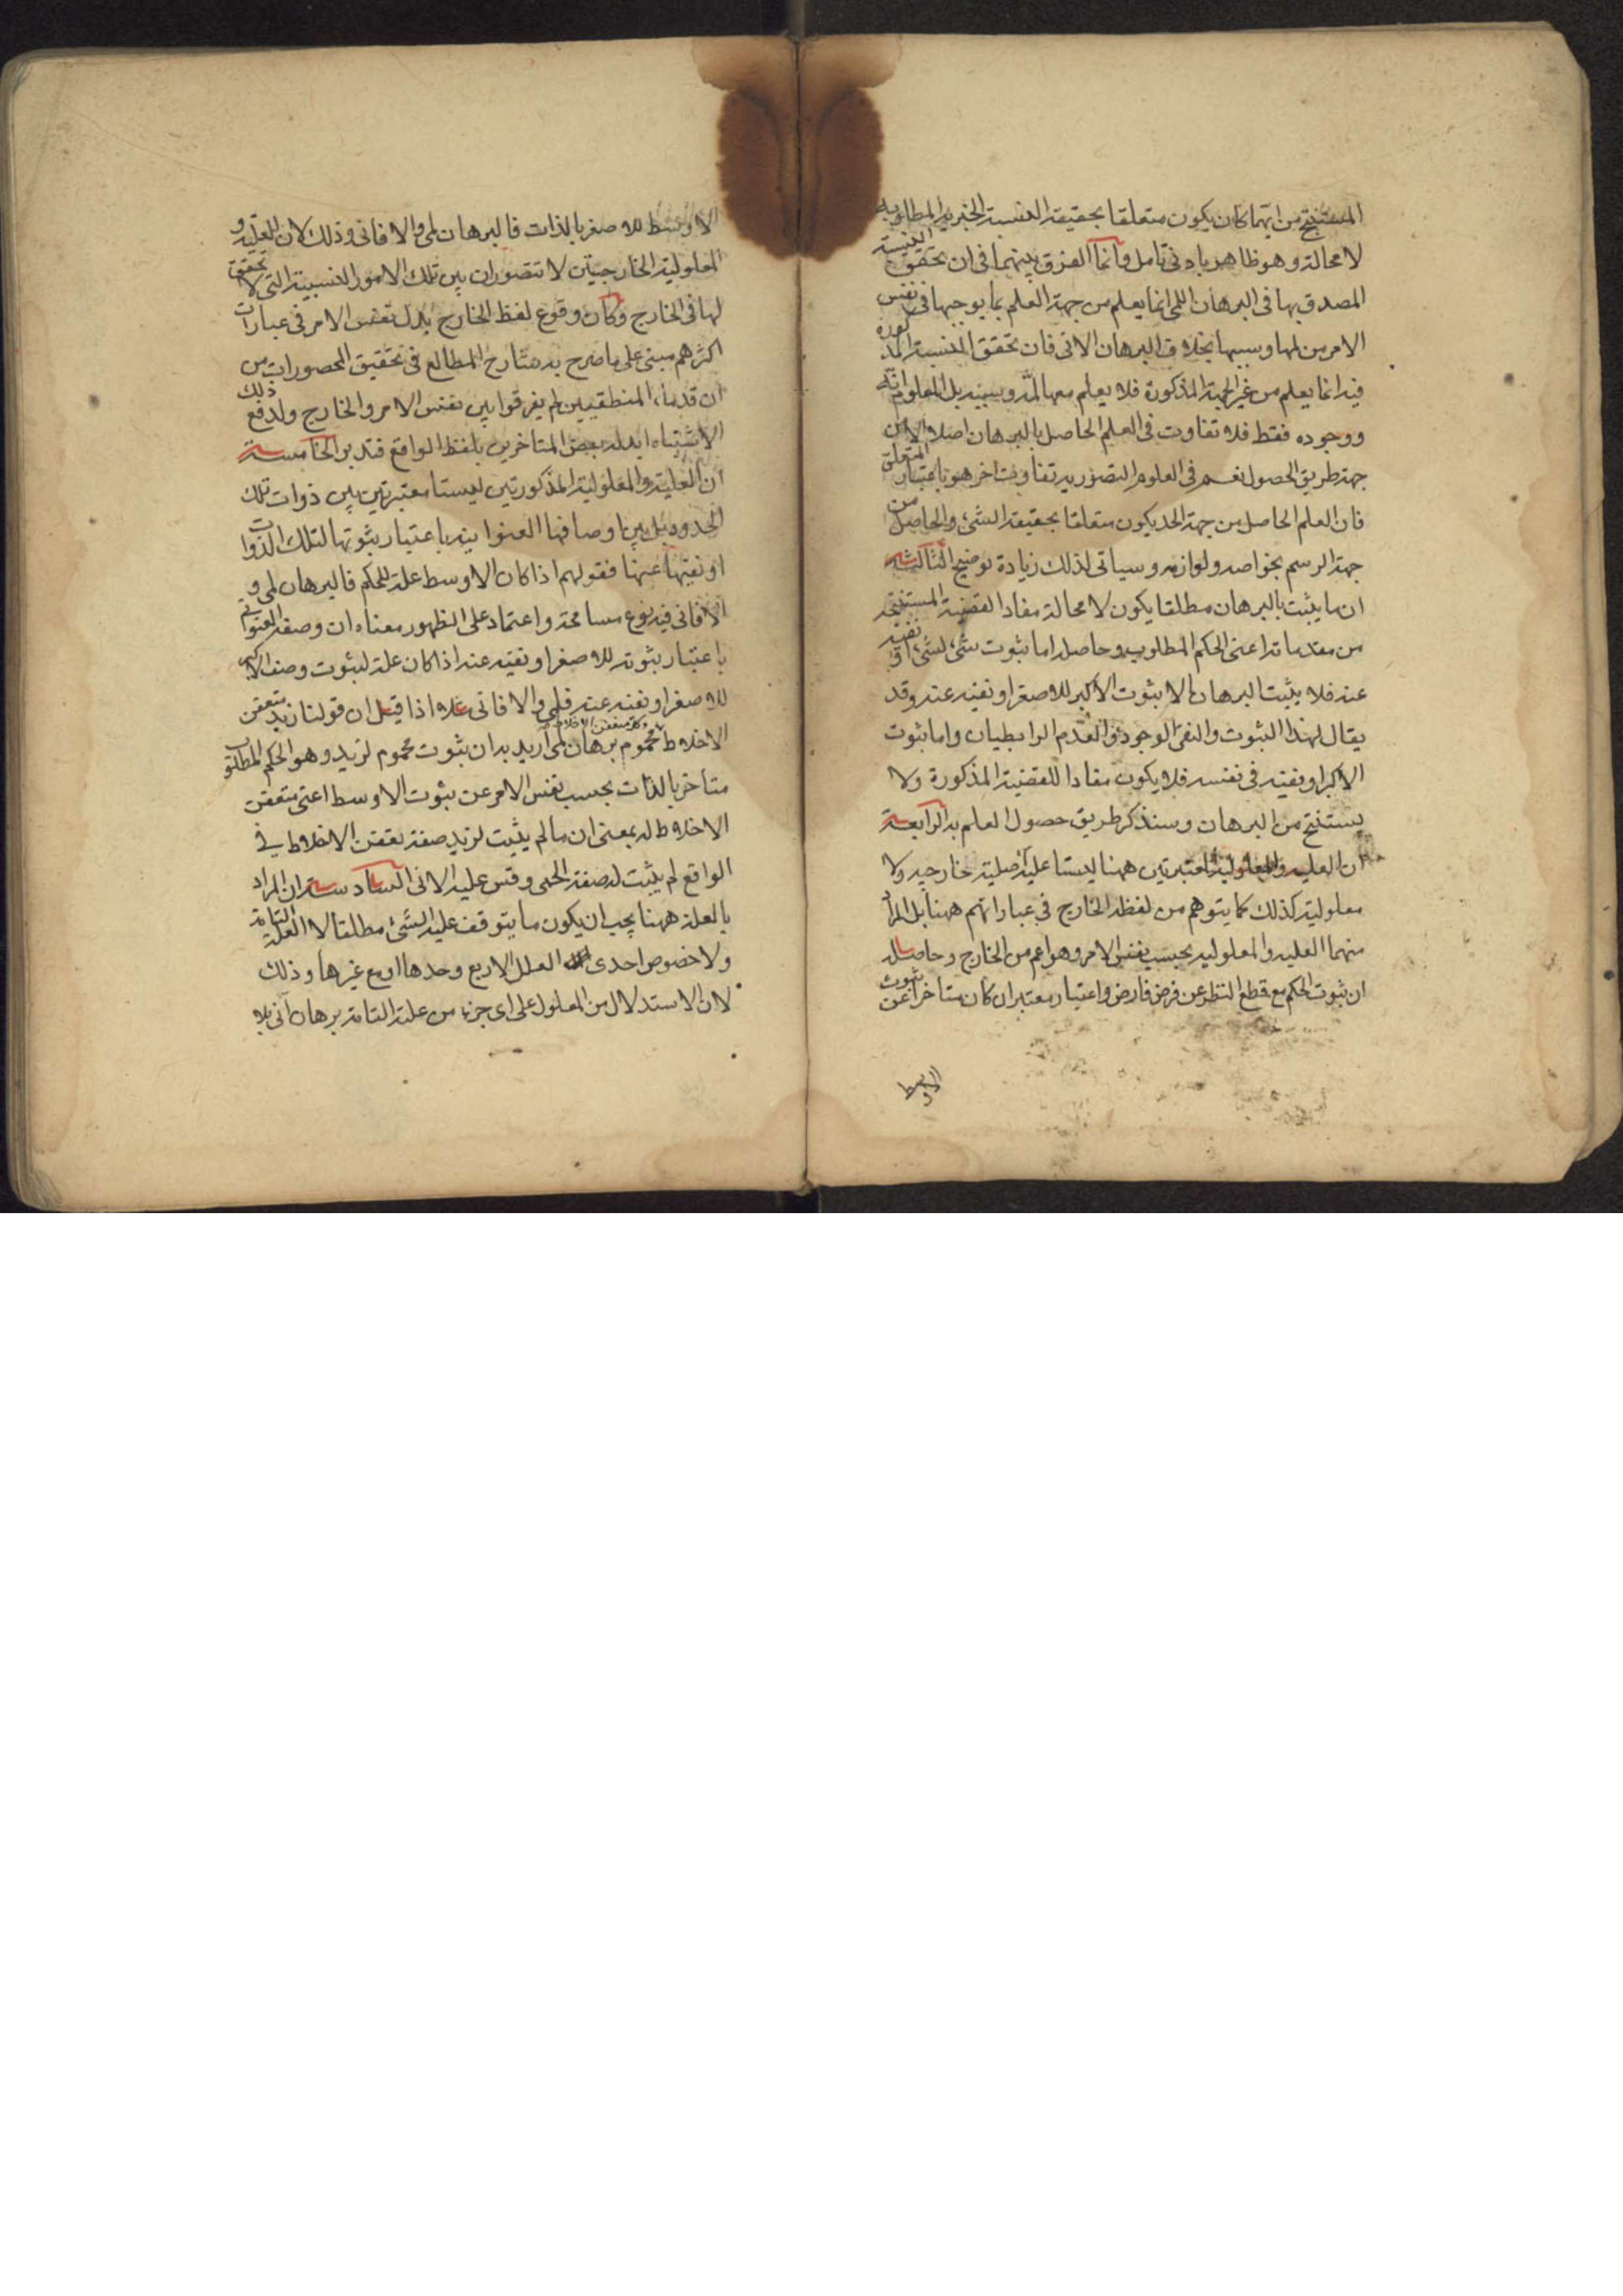 المستنتج من ايتهما كان يكون متعلقا بحقيقة النسبة الخبرية المطلوبة
لا محالة وهو ظاهر بادنى تامل وانما الفرق بينهما في ان تحقق النسبة
المصدق بها في البرهان اللمي انما يعلم من جهة العلم بما يوجبها في نفس
الامر من لمها وسببها بخلاف البرهان الاني فان تحقق النسبة المذكورة
فيه انما يعلم من غير الجهة المذكورة فلا يعلم معها لمه وسببه بل المعلوم انه
ووجوده فقط فلا تفاوت في العلم الحاصل بالبرهان اصلا الا من
جهة طريق الحصول نعم في العلوم التصورية تفاوت اخر هو باعتبار المتعلق
فان العلم الحاصل من جهة الحد يكون متعلقا بحقيقة الشئ والحاصل من
جهة الرسم بخواصه ولوازمه وسياتى لذلك زيادة توضيح الثالثة
ان ما يثبت بالبرهان مطلقا يكون لا محالة مفاد القضية المستنتجة
من مقدماته اعنى الحكم المطلوب وحاصله اما ثبوت شئ لشئ او نفيه
عنه فلا يثبت البرهان الا بثبوت الاكبر للاصغر او نفيه عنه وقد
يقال لهذا الثبوت والنفى الوجود والعدم الرابطيان واما ثبوت
الاكبر او نفيه في نفسه فلا يكون مفادا للقضية المذكورة ولا
يستنتج من البرهان وسنذكر طريق حصول العلم به الرابعة
ان العلية والمعلولية المعتبرتين ههنا ليستا علية اصلية خارجية ولا
معلولية كذلك كما يتوهم من لفظة الخارج في عباراتهم ههنا بل المراد
منهما العلية والمعلولية بحسب نفس الامر وهو اعم من الخارج وحاصله
ان ثبوت الحكم مع قطع النظر عن فرض فارض واعتبار معتبر ان كان متاخرا عن ثبوت
الاوسط
الاوسط للاصغر بالذات فالبرهان لمى والا فانى وذلك لان العلية و
المعلولية الخارجيتين لا تتصوران بين تلك الامور النسبية التى لا تحقق
لها في الخارج وكان وقوع لفظ الخارج بدل نفس الامر في عبارات
اكثرهم مبنى على ما صرح به شارح المطالع في تحقيق المحصورات من
ان قدماء المنطقيين لم يفرقوا بين نفس الامر والخارج ولدفع ذلك
الاشتباه ابدله بعض المتاخرين بلفظ الواقع فتدبر الخامسة
ان العلية والمعلولية المذكورتين ليستا معتبرتين بين ذوات تلك
الحدود بل بين اوصافها العنوانية باعتبار ثبوتها لتلك الذوات
او نفيها عنها فقولهم اذا كان الاوسط علة للحكم فالبرهان لمى و
الا فانى فيه نوع مسامحة واعتماد على الظهور معناه ان وصفه العنوانى
باعتبار ثبوته للاصغر او نفيه عنه اذا كان علة لثبوت وصف الاكبر
للاصغر او نفيه عنه فلمى والا فانى مثلا اذا قيل ان قولنا زيد متعفن
الاخلاط وكل متعفن الاخلاط محموم برهان لمى اريد به ان ثبوت محموم لزيد وهو الحكم المطلوب
متاخر بالذات بحسب نفس الامر عن ثبوت الاوسط اعنى متعفن
الاخلاط له بمعنى ان ما لم يثبت لزيد صفة تعفن الاخلاط في
الواقع لم يثبت له صفة الحمى وقس عليه الانى السادسة ان المراد
بالعلة ههنا يجب ان يكون ما يتوقف عليه الشئ مطلقا لا العلة التامة
ولا خصوص احدى العلل الاربع وحدها او مع غيرها وذلك
لان الاستدلال من المعلول على اى جزء من علته التامة برهان انى بلا